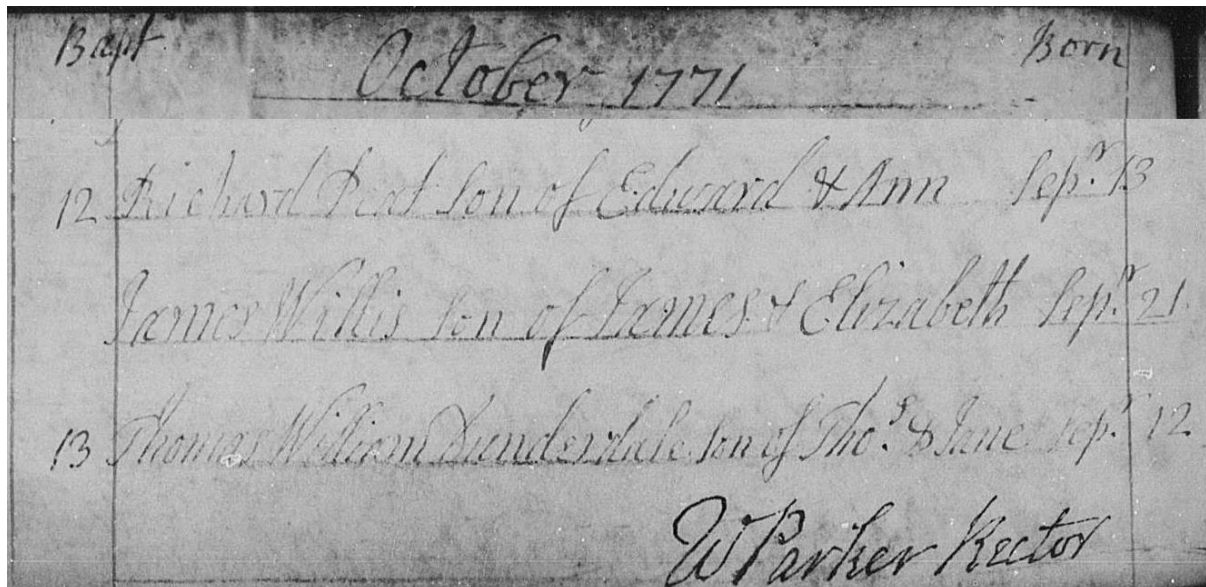 Bapt October 1771 Born
12 Richard Peat Son of Edward & Ann Sepr. 13
James Willis Son of James & Elizabeth Sepr. 21
13 Thomas William Dunderdale Son of Thos. & Jane Sepr. 12
W Parker Rector